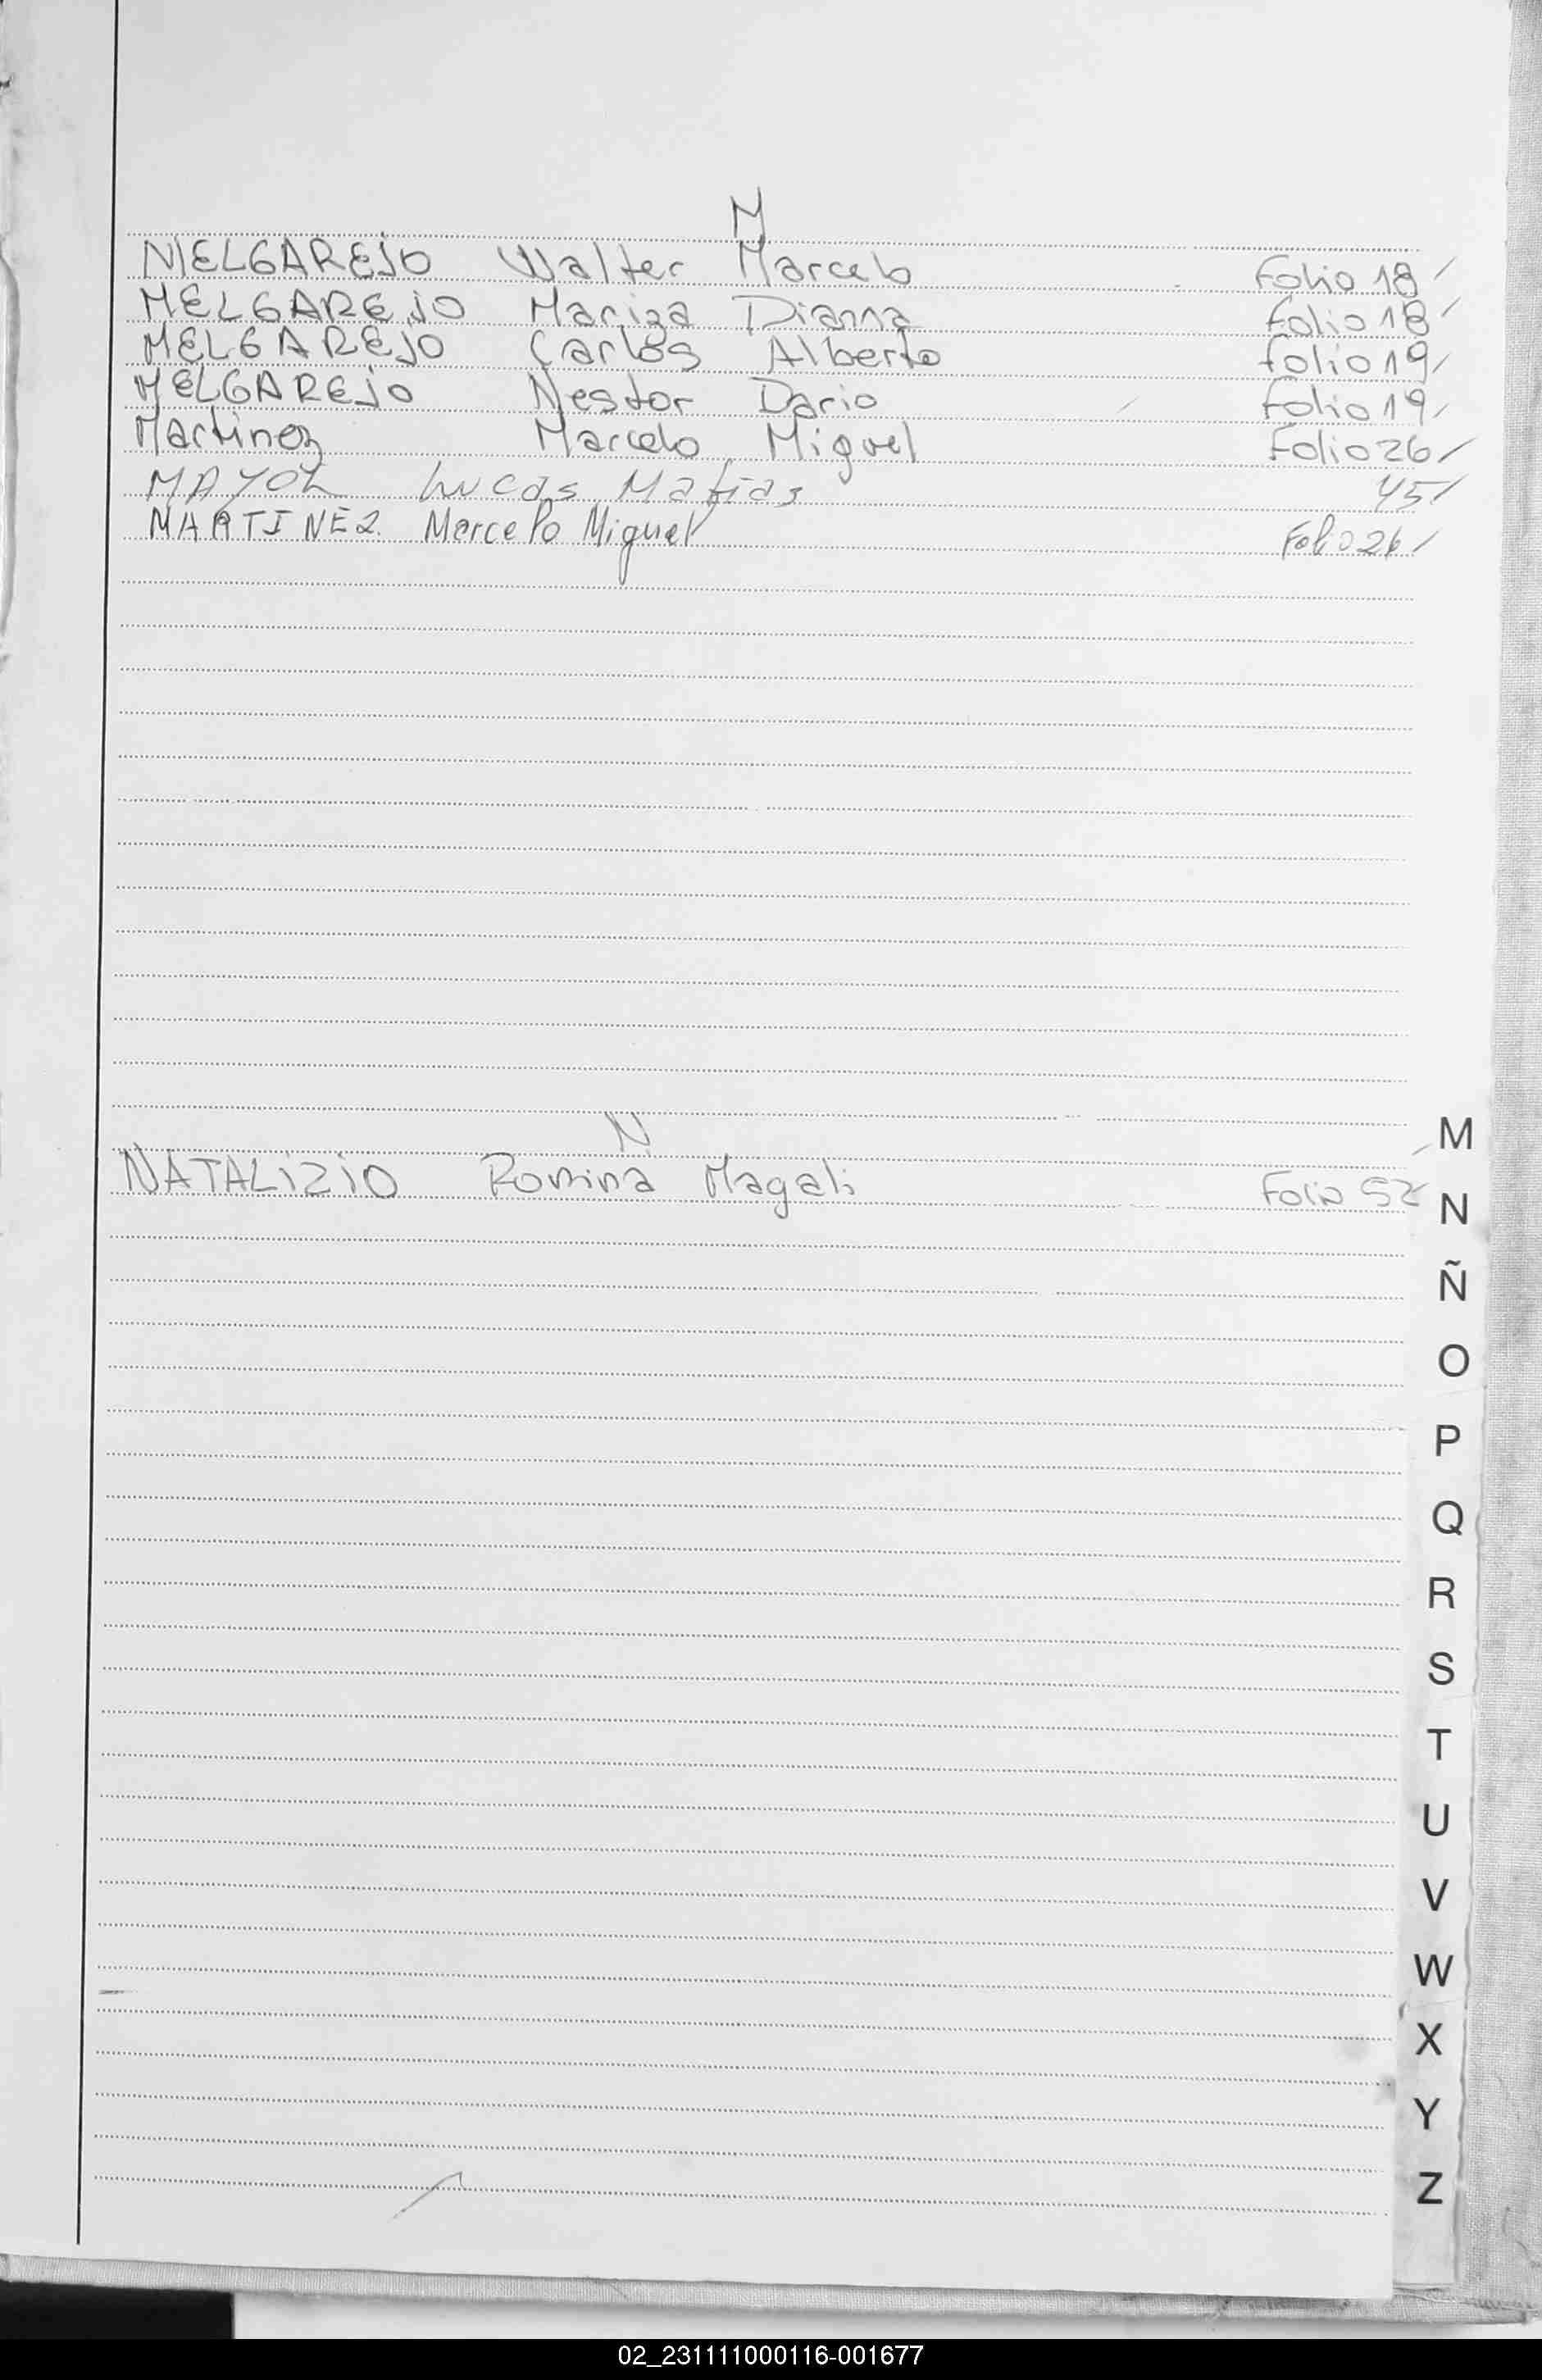 M
MELGAREJO Walter Marcelo Folio 18
MELGAREJO Mariza Diana Folio 18
MELGAREJO Carlos Alberto folio 19
MELGAREJO Nestor Dario Folio 19
Martinez Marcelo Miguel Folio 26
MAYOL Lucas Matias 45
MARTINEZ Marcelo Miguel Folio 26
N
NATALIZIO Romina Magali Folio 52
M
N
Ñ
O
P
Q
R
S
T
U
V
W
X
Y
Z
02_231111000116-001677